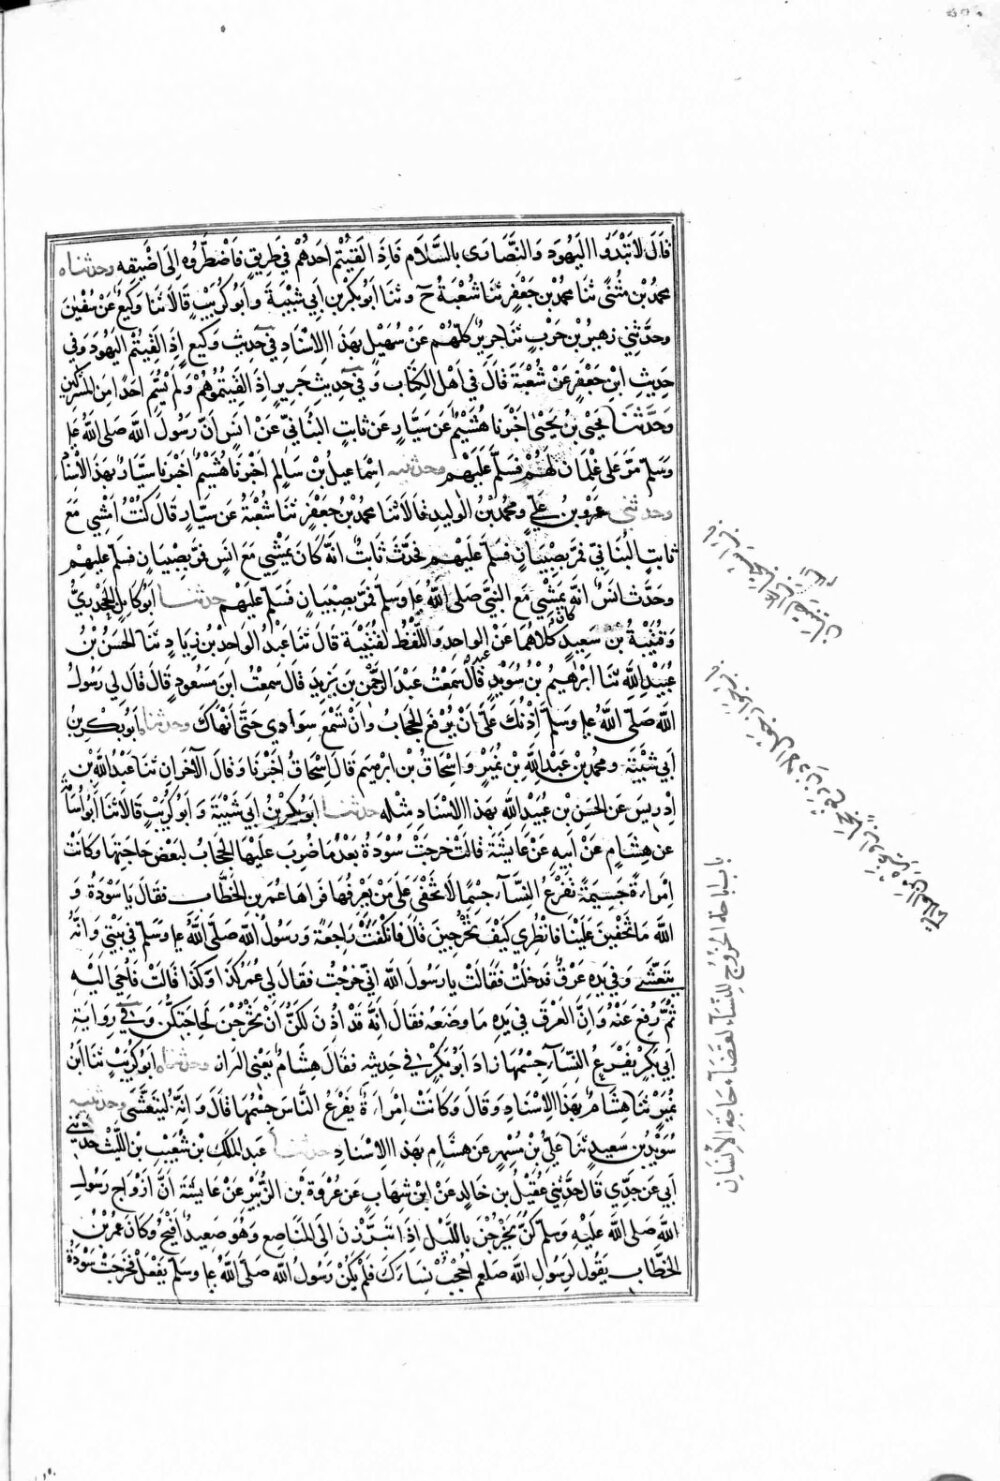 قال لا تبدؤا اليهود والنصارى بالسلام فاذ القيتم احدهم في طريق فاضطروه الى اضيقه وحدثناه
محمد بن مثنى ثنا محمد بن جعفر ثنا شعبة ح وثنا ابو بكر بن ابي شيبة وابو كريب قالا ثنا وكيع عن سفين
وحدثني زهير بن حرب ثنا جرير كلهم عن سهيل بهذا الاسناد في حديث وكيع اذ القيتم اليهود وفي
حديث ابن جعفر عن شعبة قال في اهل الكتاب وفي حديث جرير اذ القيتموهم ولم يسم احدا من المشركين
وحدثنا يحيى بن يحيى اخبرنا هشيم عن سيار عن ثابت البناني عن انس ان رسول الله صلى الله عليه
وسلم مر على غلمان لهم فسلم عليهم وحدثنيه اسماعيل بن سالم اخبرنا هشيم اخبرنا سيار بهذا الاسناد
وحدثني عمرو بن علي ومحمد بن الوليد قالا ثنا محمد بن جعفر ثنا شعبة عن سيار قال كنت امشي مع
ثابت البناني فمر بصبيان فسلم عليهم فحدث ثابت انه كان يمشي مع انس فمر بصبيان فسلم عليهم
وحدث انس انه كان يمشي مع النبي صلى الله عليه وسلم فمر بصبيان فسلم عليهم حدثنا ابو كامل الجحدري
وقتيبة بن سعيد كلاهما عن عبد الواحد واللفظ لقتيبة قال ثنا عبد الواحد بن زياد ثنا الحسن بن
عبيد الله ثنا ابرهيم بن سويد قال سمعت عبد الرحمن بن يزيد قال سمعت ابن مسعود قال قال لي رسول
الله صلى الله عليه وسلم اذنك على ان يرفع الحجاب وان تسمع سوادي حتى انهاك وحدثناه ابو بكر بن
ابي شيبة ومحمد بن عبد الله بن نمير واسحاق بن ابرهيم قال اسحاق اخبرنا وقال الآخران ثنا عبد الله بن
ادريس عن الحسن بن عبيد الله بهذا الاسناد مثله حدثنا ابو بكر بن ابي شيبة وابو كريب قالا ثنا ابو اسامة
عن هشام عن ابيه عن عايشة قالت خرجت سودة بعد ما ضرب عليها الحجاب لبعض حاجتها وكانت
امراءة جسيمة تفرع النسآء جسما لا تخفى على من يعرفها فراها عمر بن الخطاب فقال يا سودة و
الله ما تخفين علينا فانظري كيف تخرجين قال فانكفت راجعة ورسول الله صلى الله عليه وسلم في بيتي وانه
يتعشى وفي يده عرق فدخلت فقالت يا رسول الله اني خرجت فقال لي عمر كذا وكذا قالت فاحي اليه
ثم رفع عنه وان العرق في يده ما وضعه فقال انه قد اذن لكن ان تخرجن لحاجتكن وفي رواية
ابي بكر يفرع النسآء جسمها زاد ابو بكر في حديثه فقال هشام يعني البراز وحدثناه ابو كريب ثنا ابن
نمير ثنا هشام بهذا الاسناد وقال وكانت امراءة يفرع الناس جسمها قال وانه ليتعشى وحدثنيه
سويد بن سعيد ثنا علي بن مسهر عن هشام بهذا الاسناد حدثنا عبد الملك بن شعيب بن الليث حدثني
ابي عن جدي قال حدثني عقيل بن خالد عن ابن شهاب عن عروة بن الزبير عن عايشة ان ازواج رسول
الله صلى الله عليه وسلم كن يخرجن بالليل اذا تبرزن الى المناصع وهو صعيد افيح وكان عمر بن
الخطاب يقول لرسول الله صلعم احجب نساءك فلم يكن رسول الله صلى الله عليه وسلم يفعل فخرجت سودة
باب اباحة الخروج للنسآء لقضآء حاجة الانسان